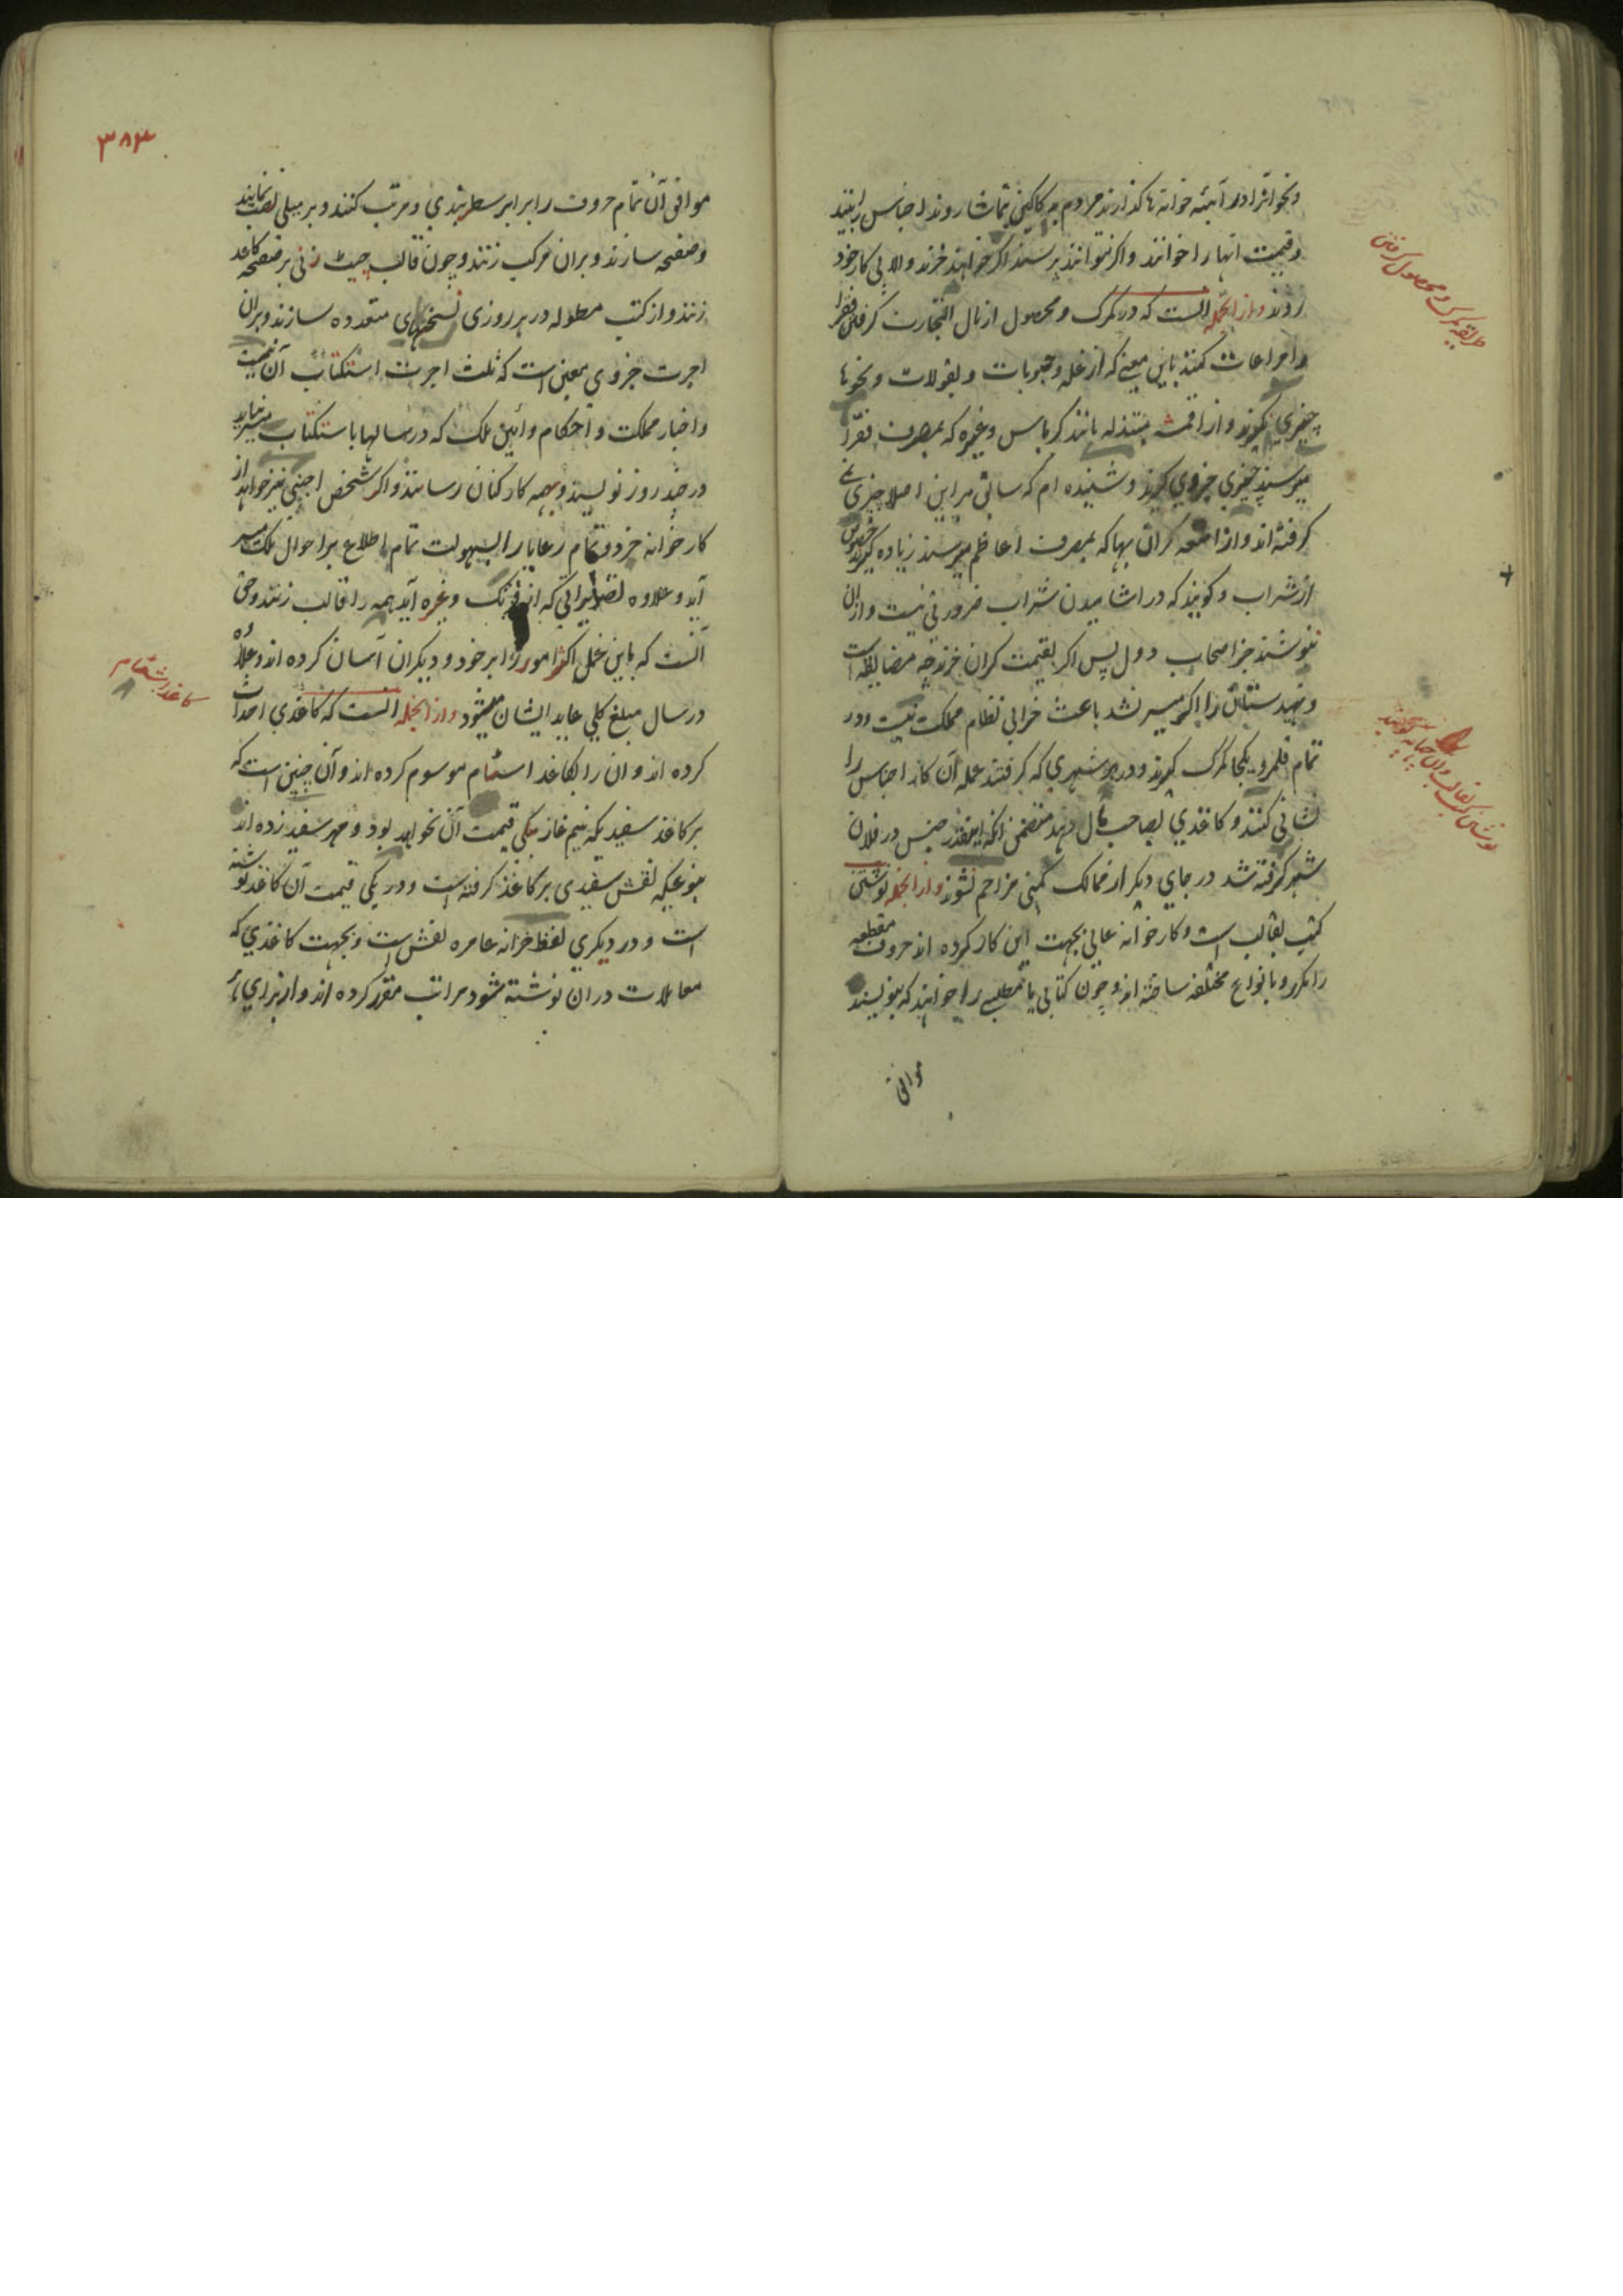 و نحو آنرا در آینه خوانه ها گذارند مردم بدکاکین بتماشا روند اجناس را بینند
و قیمت آنها را خوانند و اگر نتوانند پرسند اگر خواهند خرند والا پی کار خود
روند و از انجمله انست که در گمرک و محصول از مال التجارت گرفتن فقرا
را مراعات کنند باین معنی که از غله و حبوبات و بقولات و نحوها
چیزی نگیرند و از اقمشه مبتذله مانند کرباس و غیره که بمصرف فقرا
میرسند چیزی جزوی گیرند و شنیده ام که سابق بر این اصلا چیزی نمی
گرفته اند و از امتعه گران بها که بمصرف اعاظم میرسند زیاده گیرند خصوص
از شراب و گویند که در اشامیدن شراب ضرورتی نیست و از ان
ننوشند جز اصحاب دول پس اگر بقیمت گران خرند چه مضایقه است
و تهیدستان را اگر میسر نشد باعث خرابی نظام مملکت نیست و در
تمام قلمرو یکجا گمرک گیرند و در هر شهری که گرفتند عمله آن کار اجناس را
نشانی کنند و کاغذی بصاحب مال دهند متضمن انکه اینقدر جنس در فلان
شهر گرفته شد در جای دیگر از ممالک کمپنی مزاحم نشوند و از انجمله نوشتن
کتب بقالب است و کارخوانه عالی بجهت این کار کرده اند حروف مقطعه
را مکرر و بانواع مختلفه ساخته اند و چون کتابی یا مطلبی را خواهند که بنویسند
موافق
طریقه گمرک و محصول گرفتن
نوشتن کتب بقالب و ان چاپه گویند
۳۸۳
موافق آن تمام حروف را برابر سطربندی و مرتب کنند و بر میلی نصب نمایند
و صفحه سازند و بران مرکب زنند و چون قالب چیت زنی بر صفحه کاغذ
زنند و از کتب مطوله در هر روزی نسخهای متعدده سازند و بران
اجرت جزوی معین است که ثلث اجرت استکتاب آن نیست
و اخبار مملکت و احکام و آئین ملک که در سالها باستکتاب میسر نیاید
در چند روز نویسند و بهمه کارکنان رسانند و اگر شخص اجنبی نیز خواهد از
کارخوانه خرد و تمام رعایا را بسهولت تمام اطلاع بر احوال ملک میسر
آید و علاوه تصاویراتی که از فرنگ و غیره آید همه را قالب زنند و حق
آنست که باین عمل اکثر امور را بر خود و دیگران آسان کرده اند و علاوه
در سال مبلغ کلی عاید ایشان میشود و از انجمله انست که کاغذی احداث
کرده اند و ان را بکاغذ اسٹام موسوم کرده اند و آن چنین است که
بر کاغذ سفید یکه نیم غاز بیگی قیمت آن نخواهد بود و مهر سفید زده اند
بنوعیکه نقش سفیدی بر کاغذ گرفته است و در یکی قیمت آن کاغذ نوشته
است و در دیگری لفظ خزانه عامره نقش است و بجهت کاغذی که
معاملات در ان نوشته شود مراتب مقرر کرده اند و از برای هر
کاغذ اسٹام